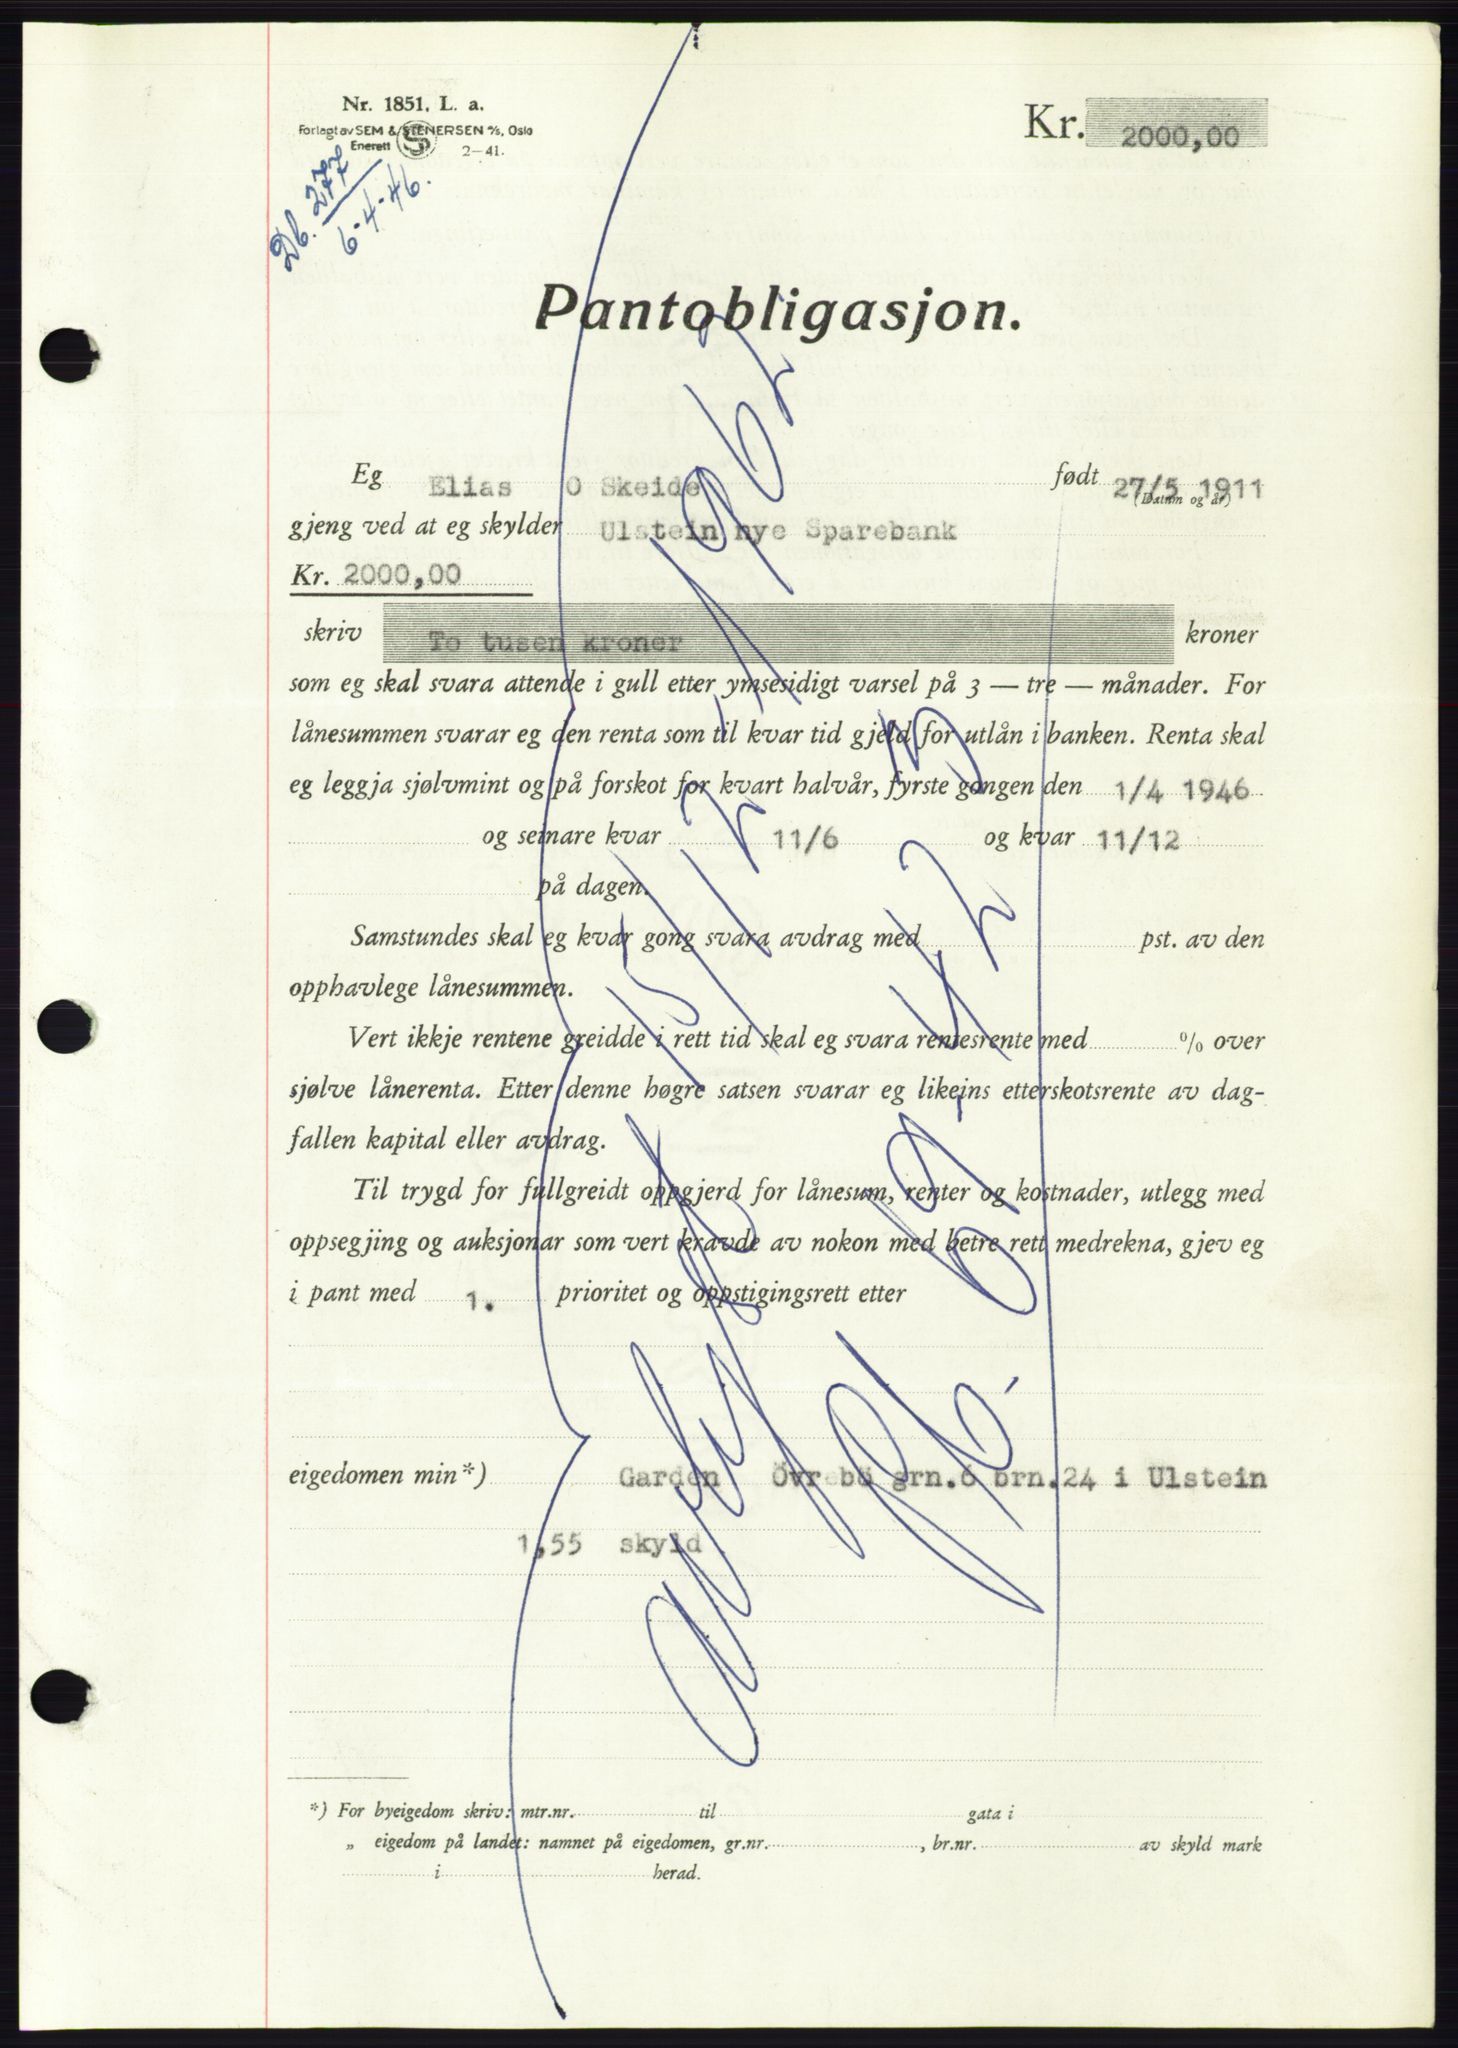 Nr. 1851. L. a.
Forlagt av SEM & STENERSEN A/S, Oslo
Enerett S 2—41.
Kr. 2000,00
Db. 277
6-4-46.
Pantobligasjon.
Eg Elias O Skeide født 27/5 1911
(Datum og år)
gjeng ved at eg skylder Ulstein nye Sparebank
Kr. 2000,00
skriv To tusen kroner kroner
som eg skal svara attende i gull etter ymsesidigt varsel på 3 — tre — månader. For
lånesummen svarar eg den renta som til kvar tid gjeld for utlån i banken. Renta skal
eg leggja sjølvmint og på forskot for kvart halvår, fyrste gongen den 1/4 1946
og seinare kvar 11/6 og kvar 11/12
på dagen.
Samstundes skal eg kvar gong svara avdrag med pst. av den
opphavlege lånesummen.
Vert ikkje rentene greidde i rett tid skal eg svara rentesrente med % over
sjølve lånerenta. Etter denne høgre satsen svarar eg likeins etterskotsrente av dag-
fallen kapital eller avdrag.
Til trygd for fullgreidt oppgjerd for lånesum, renter og kostnader, utlegg med
oppsegjing og auksjonar som vert kravde av nokon med betre rett medrekna, gjev eg
i pant med 1. prioritet og oppstigingsrett etter
eigedomen min*) Garden Övrebö grn.6 brn.24 i Ulstein
1,55 skyld
avlyst
*) For byeigedom skriv: mtr.nr. til gata i
„ eigedom på landet: namnet på eigedomen, gr.nr. , br.nr. av skyld mark
i herad.